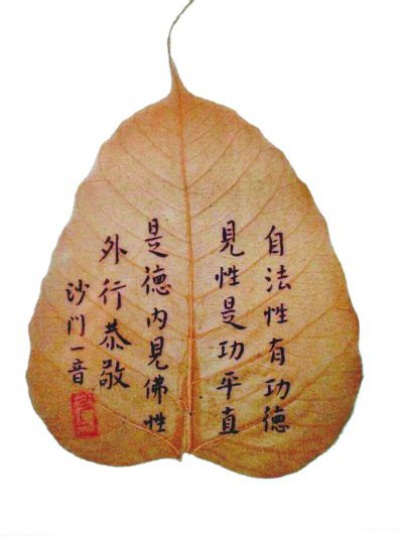 自法性有功德
見性是功平直
是德內見佛性
外行恭敬
沙門一音